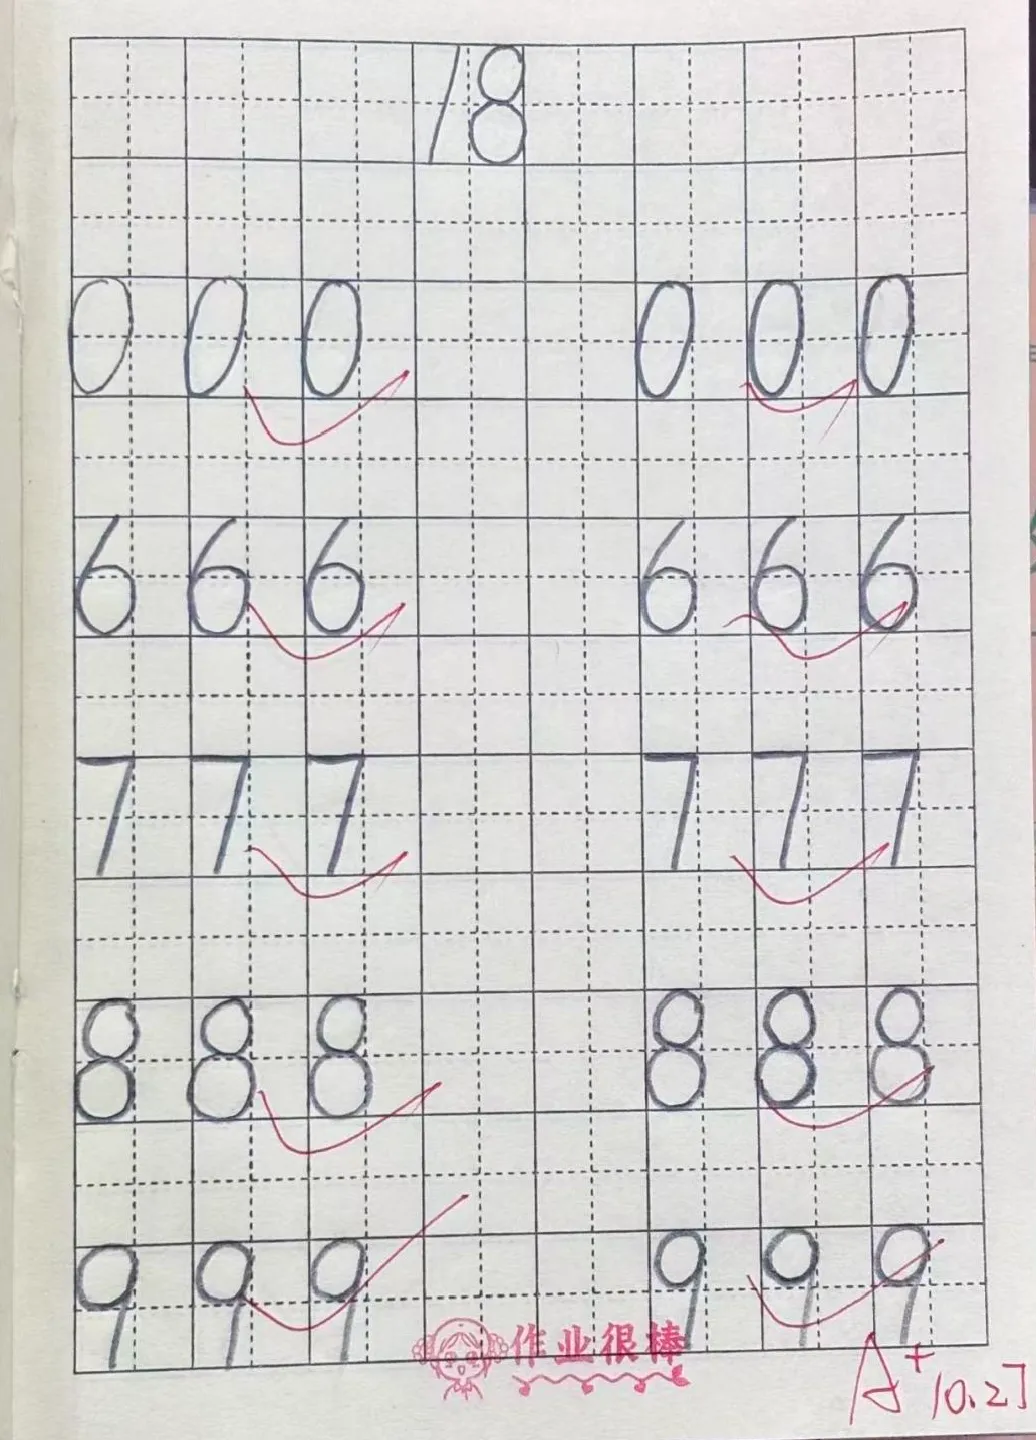 18
0 0 0 0 0 0
6 6 6 6 6 6
7 7 7 7 7 7
8 8 8 8 8 8
9 9 9 9 9 9
作业很棒
A+ 10.27